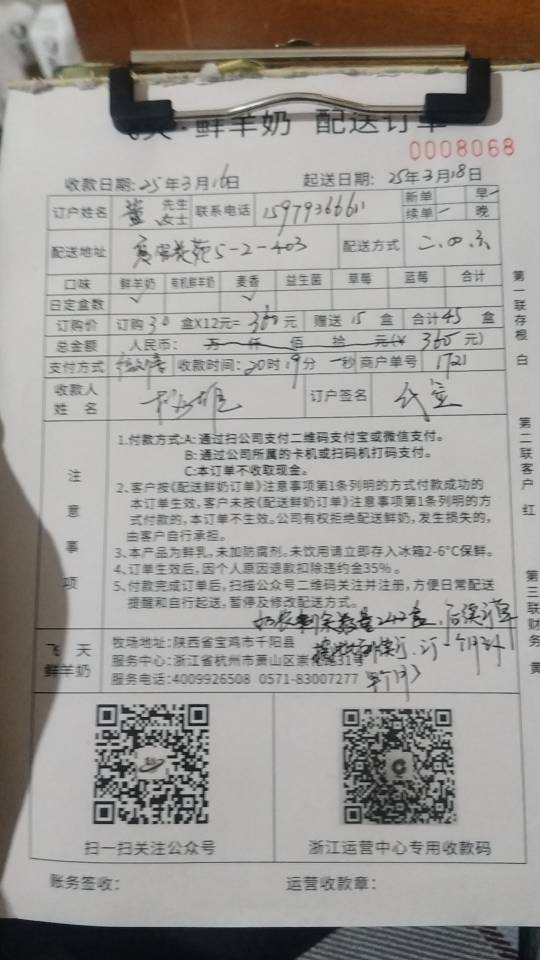 飞天·鲜羊奶 配送订单
0008068
收款日期:25年3月16日 起送日期:25年3月18日
订户姓名 先生 女士 联系电话 15979366611 新单 早
续单 晚
配送地址 5-2-403 配送方式 二.四.六
口味 鲜羊奶 有机鲜羊奶 麦香 益生菌 草莓 蓝莓 合计
日定盒数 ✓ ✓
订购价 订购30盒X12元=360元 赠送15盒 合计45盒
总金额 人民币: 万 仟 佰 拾 元(¥ 360元)
支付方式 收款时间:20时19分一秒 商户单号 1721
收款人姓名 订户签名 代签
注意事项
1.付款方式:A:通过扫公司支付二维码支付宝或微信支付。
B:通过公司所属的卡机或扫码机打码支付。
C:本订单不收取现金。
2、客户按《配送鲜奶订单》注意事项第1条列明的方式付款成功的
本订单生效,客户未按《配送鲜奶订单》注意事项第1条列明的方
式付款的,本订单不生效。公司有权拒绝配送鲜奶,发生损失的,
由客户自行承担。
3、本产品为鲜乳。未加防腐剂。未饮用请立即存入冰箱2-6°C保鲜。
4、订单生效后,因个人原因退款扣除违约金35%。
5、付款完成订单后,扫描公众号二维码关注并注册,方便日常配送
提醒和自行起送,暂停及修改配送方式。
飞天
鲜羊奶
牧场地址:陕西省宝鸡市千阳县
服务中心:浙江省杭州市萧山区崇化路31号
服务电话:4009926508 0571-83007277
扫一扫关注公众号 浙江运营中心专用收款码
账务签收: 运营收款章:
第一联存根 白
第二联客户 红
第三联财务 黄